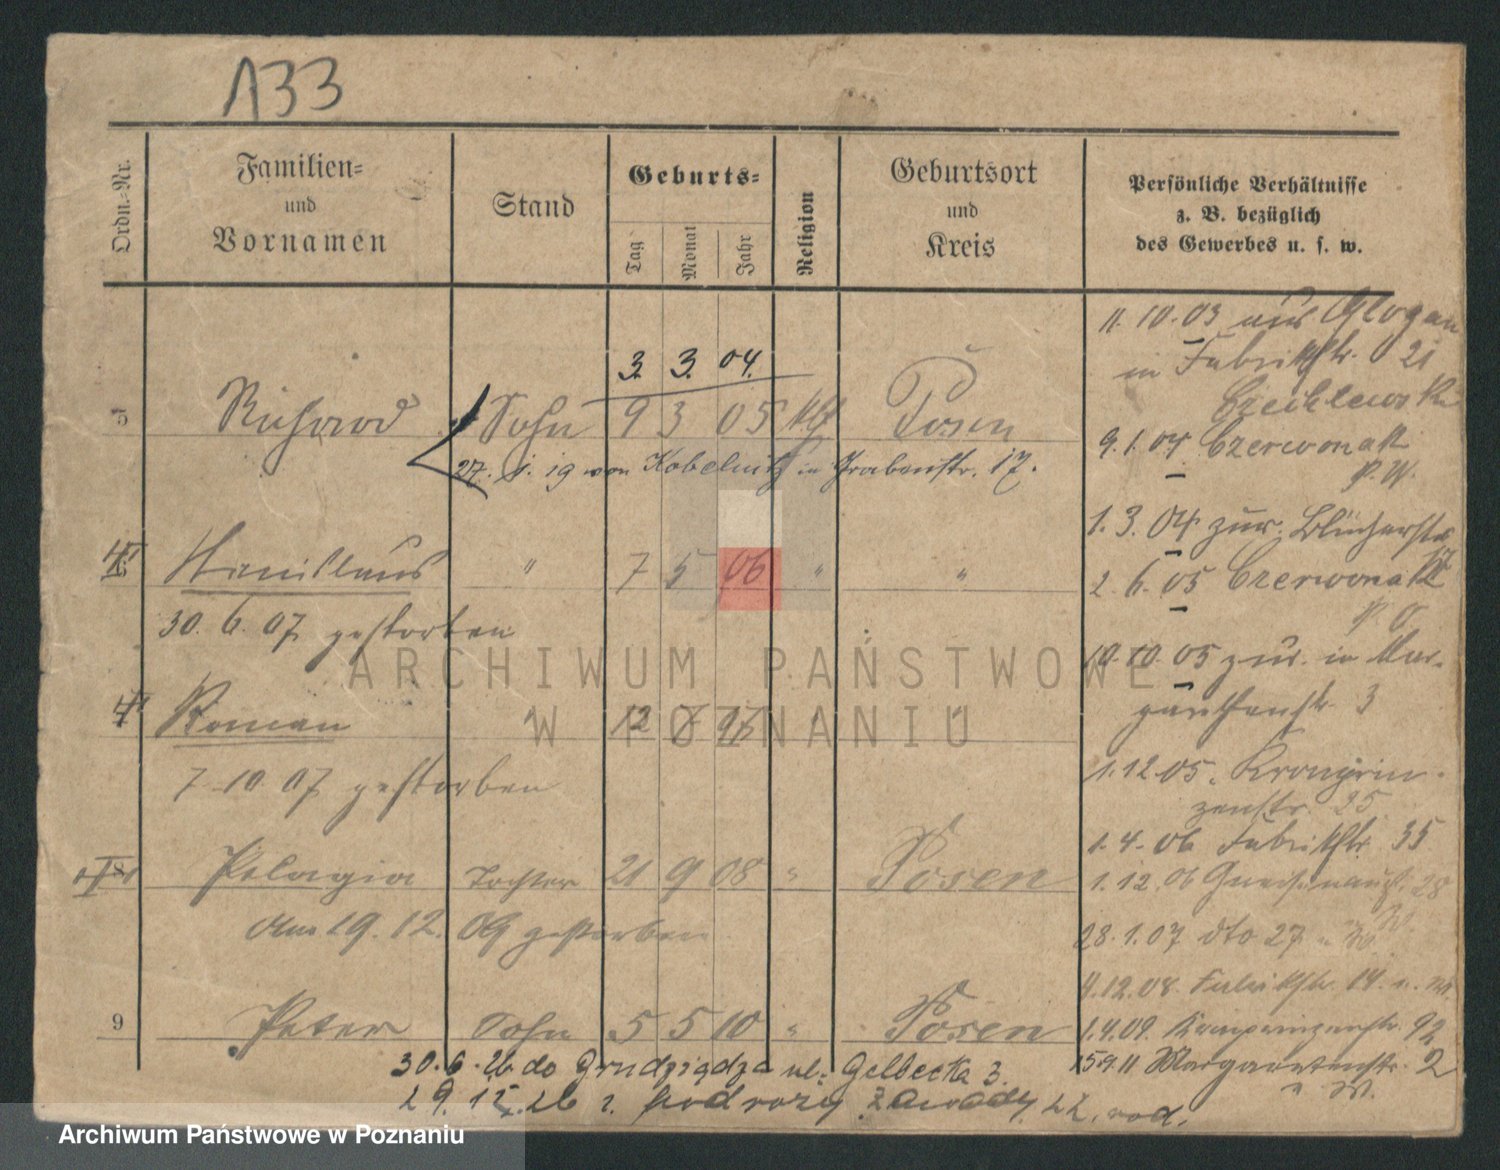 133
Ordn.-Nr.
Familien-
und
Vornamen
Stand
Geburts-
Tag
Monat
Jahr
Religion
Geburtsort
und
Kreis
Persönliche Verhältnisse
z. B. bezüglich
des Gewerbes u. s. w.
3. 3. 04.
5 Richard Sohn 9 3 05 kth Posen
27. 1. 19 von Kobelnitz in Grabenstr. 17.
Stanislaus " 7 5 06 " "
30. 6. 07 gestorben
Roman " 12 " "
7 10 07 gestorben
Pelagia Tochter 21 9 08 " Posen
am 19. 12. 09 gestorben
9 Peter Sohn 5 5 10 " Posen
30. 6. 26 do Grudziądza ul: 3.
29. 12. 26 z podróży Zawady 22, rod.
11. 10. 03 aus Glogau
in Fabrikstr. 21
9. 1. 04 Czerwonak
P. W.
1. 3. 04 zur. Blücherstr
2. 6. 05 Czerwonak
P. O.
10. 10. 05 zur. in Mar-
garethenstr. 3
1. 12. 05. Kronprin-
zenstr. 25
1. 4. 06 Fabrikstr. 35
1. 12. 06 Gneisenaustr. 28
28. 1. 07 dto 27
11. 12. 08. Fabrikstr. 14
1. 4. 09. Kronprinzenstr. 92
15. 9. 11 Margaretenstr. 2
ARCHIWUM PAŃSTWOWE
W POZNANIU
Archiwum Państwowe w Poznaniu